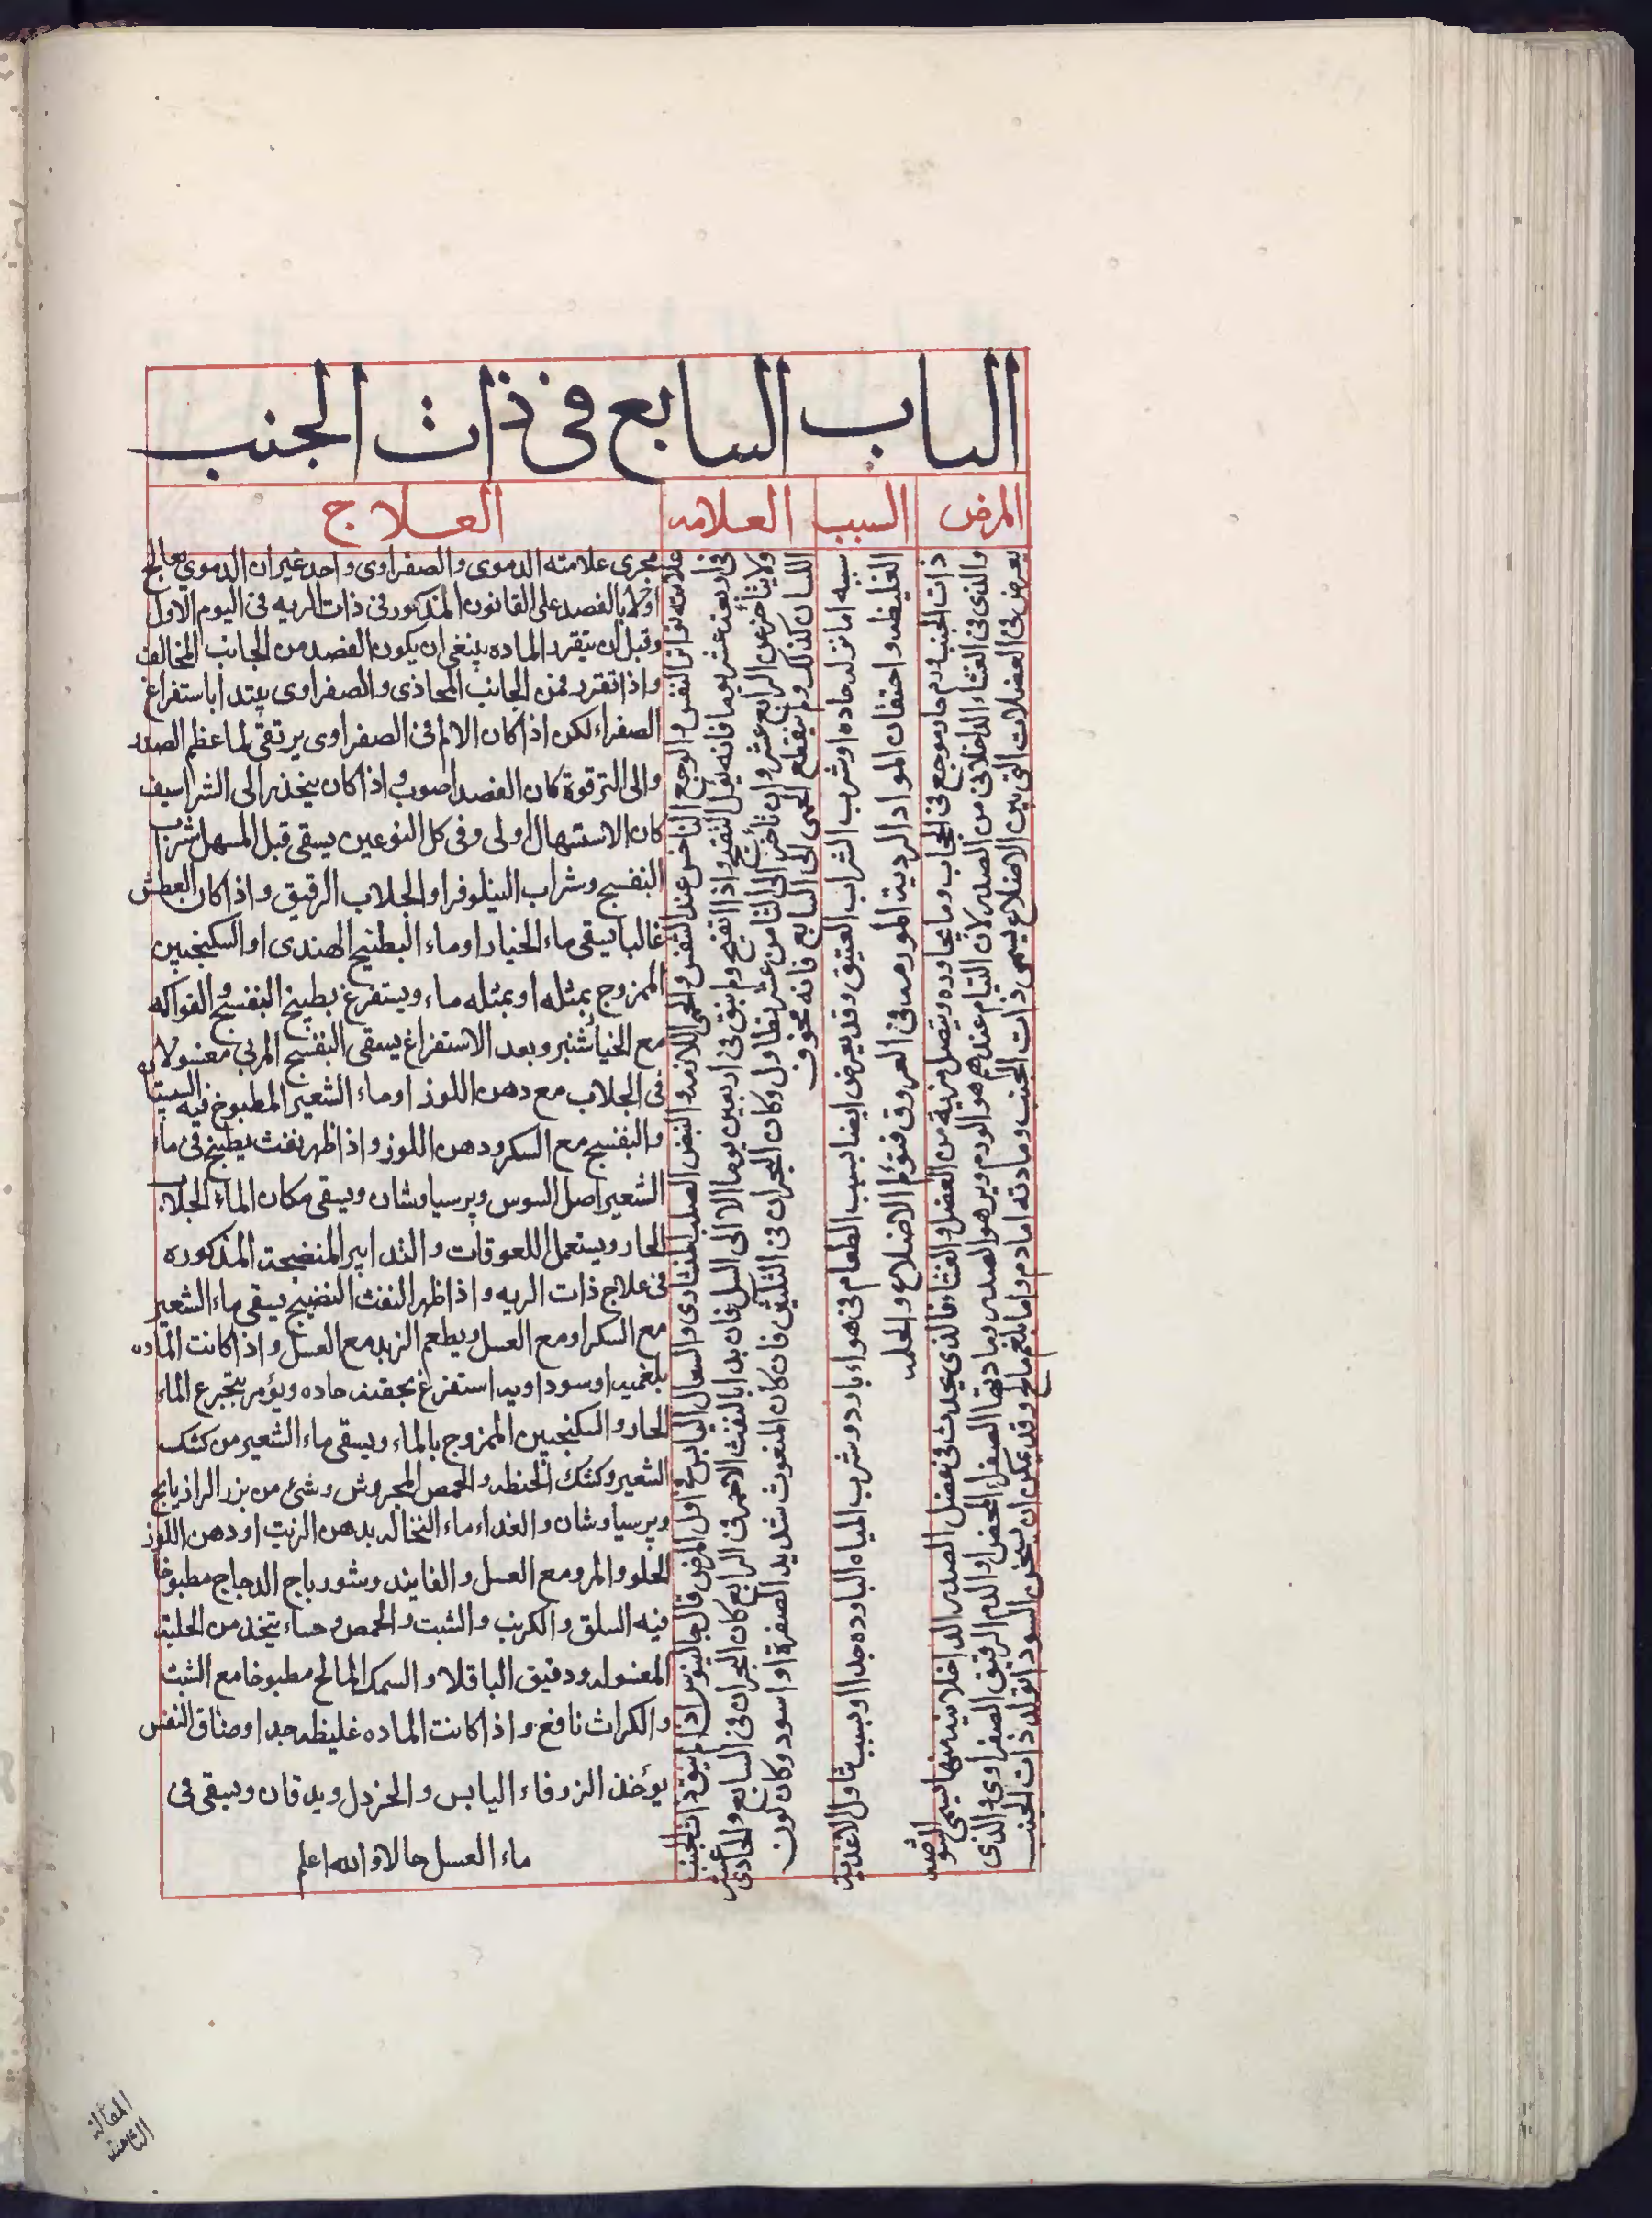 الباب السابع فى ذات الجنب
المرض
السبب
العلامه
العلاج
ذات الجنب ورم حار موجع فى الحجاب وما يحاوره ويتصل مزية من العضل والغشاء فالذى يحدث فى عضل الصدر الداخلانية منها يسمى الشوصه
والذى فى الغشاء الداخلانى من الصدر لان التيام عندهم هو الورم وبر هو الصدر ومادتها الصفراء المحض او الدم الرقيق الصفراوى والذى
يعرض فى العضلات التى بين الاضلاع يسمى ذات الجنب ومادته اما دم واما بلغم مالح وقد يمكن ان يسخن السوداء فتولد ذات الجنب
سببه اما نزله حاده او شرب الشراب العتيق وقد يعرض ايضا بسبب الطعام فى هواء بارد وشرب المياه البارده جدا او بسبب تناول الاغذيه
الغليظه واحتقان المواد الرديه المورمه فى العروق فتؤلم الاضلاع والحلمه
علامته تواتر النفس والوجع الناخس عند التنفس والحمى اللازمه والنبض الصلب المنشارى والسعال اليابس فى اول المرض قال جالينوس اذا لم ينق ذات الجنب
فى اربعة عشر يوما فانه يؤل التقيح واذا انفتح ولم ينق فى اربعين يوما الا الى السل فان بدا بالنفث الاحمر فى الرابع كان البحران فى السابع والحادى عشر
ولا يتأخر عن الرابع عشر وان تأخر الى الثامن عشر تطاول وكان البحران فى الثلثين فان كان المنفوث شديد الصفرة او اسود وكان لون
اللسان كذلك ولم ينقطع الحمى الى السابع فانه مخوف
مجرى علامته الدموى والصفراوى واحد غير ان الدموى يعالج
اولا بالفصد على القانون المذكور فى ذات الريه فى اليوم الاول
وقبل ان يتقرر الماده ينبغى ان يكون الفصد من الجانب المخالف
واذا تقرر فمن الجانب المحاذى والصفراوى يبتدا باستفراغ
الصفراء لكن اذا كان الالم فى الصفراوى يرتقى لما عظم الصدر
والى الترقوة كان الفصد اصوب واذا كان ينحذر الى الشراسيف
كان الاستسهال اولى وفى كل النوعين يسقى قبل المسهل شراب
البنفسج وشراب النيلوفر او الجلاب الرقيق واذا كان العطش
غالبا يسقى ماء الخيار او ماء البطيخ الهندى او السكنجبين
الممزوج بمثله او بمثله ماء ويستفرغ بطبيخ البنفسج والفواكه
مع الخيار شنبر وبعد الاستفراغ يسقى البنفسج المربى مغسولا
فى الجلاب مع دهن اللوز او ماء الشعير المطبوخ فيه السبستان
والبنفسج مع السكر ودهن اللوز واذا ظهر نفث يطبخ فى ماء
الشعير اصل السوس وبرسياوشان ويسقى مكان الماء الجلاب
الحار ويستعمل اللعوقات والتدابير المنضجة المذكوره
فى علاج ذات الريه واذا ظهر النفث النضيج يسقى ماء الشعير
مع السكر او مع العسل ويطعم الزبد مع العسل واذا كانت الماده
بلغميه او سوداويه استفرغ بحقنه حاده ويؤمر بتجرع الماء
الحار والسكنجبين الممزوج بالماء ويسقى ماء الشعير من كشك
الشعير وكشك الحنطه والحمص المجروش وشئ من بزر الرازيانج
وبرسياوشان والغداء ماء النخاله بدهن الزيت او دهن اللوز
الحلو والمر ومع العسل والفانيد وشورباج الدجاج مطبوخا
فيه السلق والكرنب والشبت والحمص وحساء يتخذ من الحلبة
المغسوله ودقيق الباقلا والسمك المالح مطبوخا مع الشبت
والكراث نافع واذا كانت الماده غليظه جدا وضاق النفس
يؤخذ الزوفاء اليابس والخردل ويدقان ويسقى فى
ماء العسل حالا والله اعلم
المقالة
الثامنة